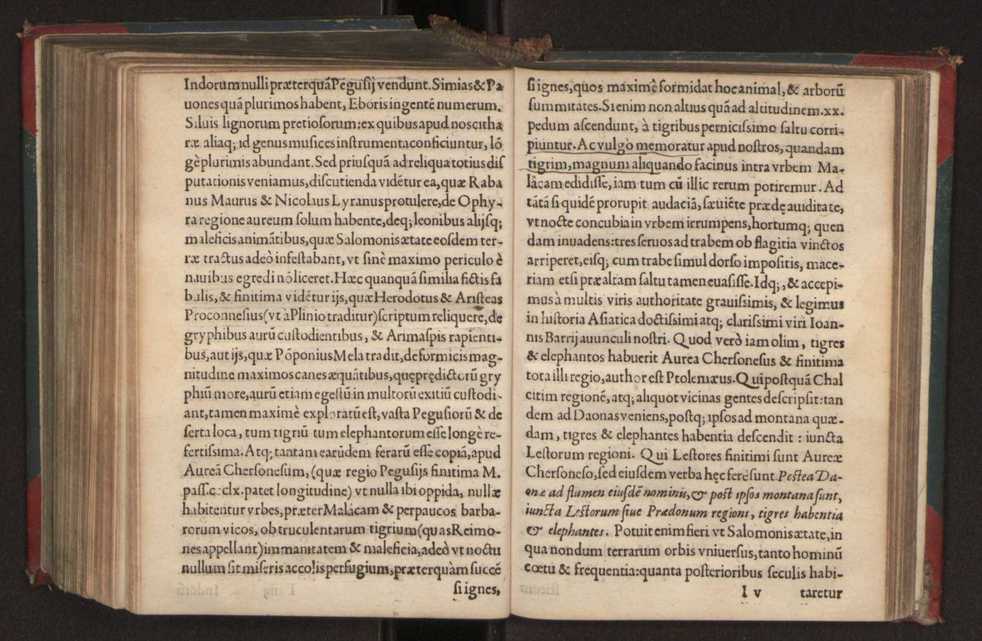 Indorum nulli præterquā Pegusij vendunt. Simias & Pa
uones quā plurimos habent, Eboris ingentē numerum.
Siluis lignorum pretiosorum: ex quibus apud nos citha
ræ aliaq; id genus musices instrumenta conficiuntur, lō
gè plurimis abundant. Sed priusquā ad reliqua totius dis
putationis veniamus, discutienda vidētur ea, quæ Raba
nus Maurus & Nicolaus Lyranus protulere, de Ophy-
ra regione aureum solum habente, deq; leonibus alijsq;
maleficis animātibus, quæ Salomonis ætate eosdem ter-
ræ tractus adeò infestabant, vt sinè maximo periculo è
nauibus egredi nō liceret. Hæc quanquā similia fictis fa
bulis, & finitima vidētur ijs, quæ Herodotus & Aristeas
Proconnesius (vt à Plinio traditur) scriptum reliquere, de
gryphibus aurū custodientibus, & Arimaspis rapienti-
bus, aut ijs, quæ Pōponius Mela tradit, de formicis mag-
nitudine maximos canes æquātibus, quę prędictorū gry
phiū more, aurū etiam egestū in multorū exitiū custodi-
ant, tamen maximè exploratū est, vasta Pegusiorū & de
serta loca, tum tigriū tum elephantorum esse longè re-
fertissima. Atq; tantam earūdem ferarū esse copiā, apud
Aureā Chersonesum, (quæ regio Pegusijs finitima M.
pass. c. clx. patet longitudine) vt nulla ibi oppida, nullæ
habitentur vrbes, præter Malácam & perpaucos barba-
rorum vicos, ob truculentarum tigrium (quas Reimo-
nes appellant) immanitatem & maleficia, adeò vt noctu
nullum sit miseris accolis perfugium, præterquàm succē
si ignes,
si ignes, quos maximè formidat hoc animal, & arborū
summitates. Si enim non altius quā ad altitudinem. xx.
pedum ascendunt, à tigribus pernicissimo saltu corri-
piuntur. Ac vulgò memoratur apud nostros, quandam
tigrim, magnum aliquando facinus intra vrbem Ma-
lácam edidisse, iam tum cū illic rerum potiremur. Ad
tātā siquidē prorupit audaciā, sæuiēte prædę auiditate,
vt nocte concubia in vrbem irrumpens, hortumq; quen
dam inuadens: tres seruos ad trabem ob flagitia vinctos
arriperet, eisq; cum trabe simul dorso impositis, mace-
riam etsi præaltam saltu tamen euasisse. Idq;, & accepi-
mus à multis viris authoritate grauissimis, & legimus
in historia Asiatica doctissimi atq; clarissimi viri Ioan-
nis Barrij auunculi nostri. Quod verò iam olim, tigres
& elephantos habuerit Aurea Chersonesus & finitima
tota illi regio, author est Ptolemæus. Qui postquā Chal
citim regionē, atq; aliquot vicinas gentes descripsit: tan
dem ad Daonas veniens, postq; ipsos ad montana quæ-
dam, tigres & elephantes habentia descendit: iuncta
Lestorum regioni. Qui Lestores finitimi sunt Aureæ
Chersoneso, sed eiusdem verba hęc ferè sunt Postea Da-
onæ ad flumen eiusdē nominis, & post ipsos montana sunt,
iuncta Lestorum siue Prædonum regioni, tigres habentia
& elephantes. Potuit enim fieri vt Salomonis ætate, in
qua nondum terrarum orbis vniuersus, tanto hominū
cœtu & frequentia: quanta posterioribus seculis habi-
I v taretur